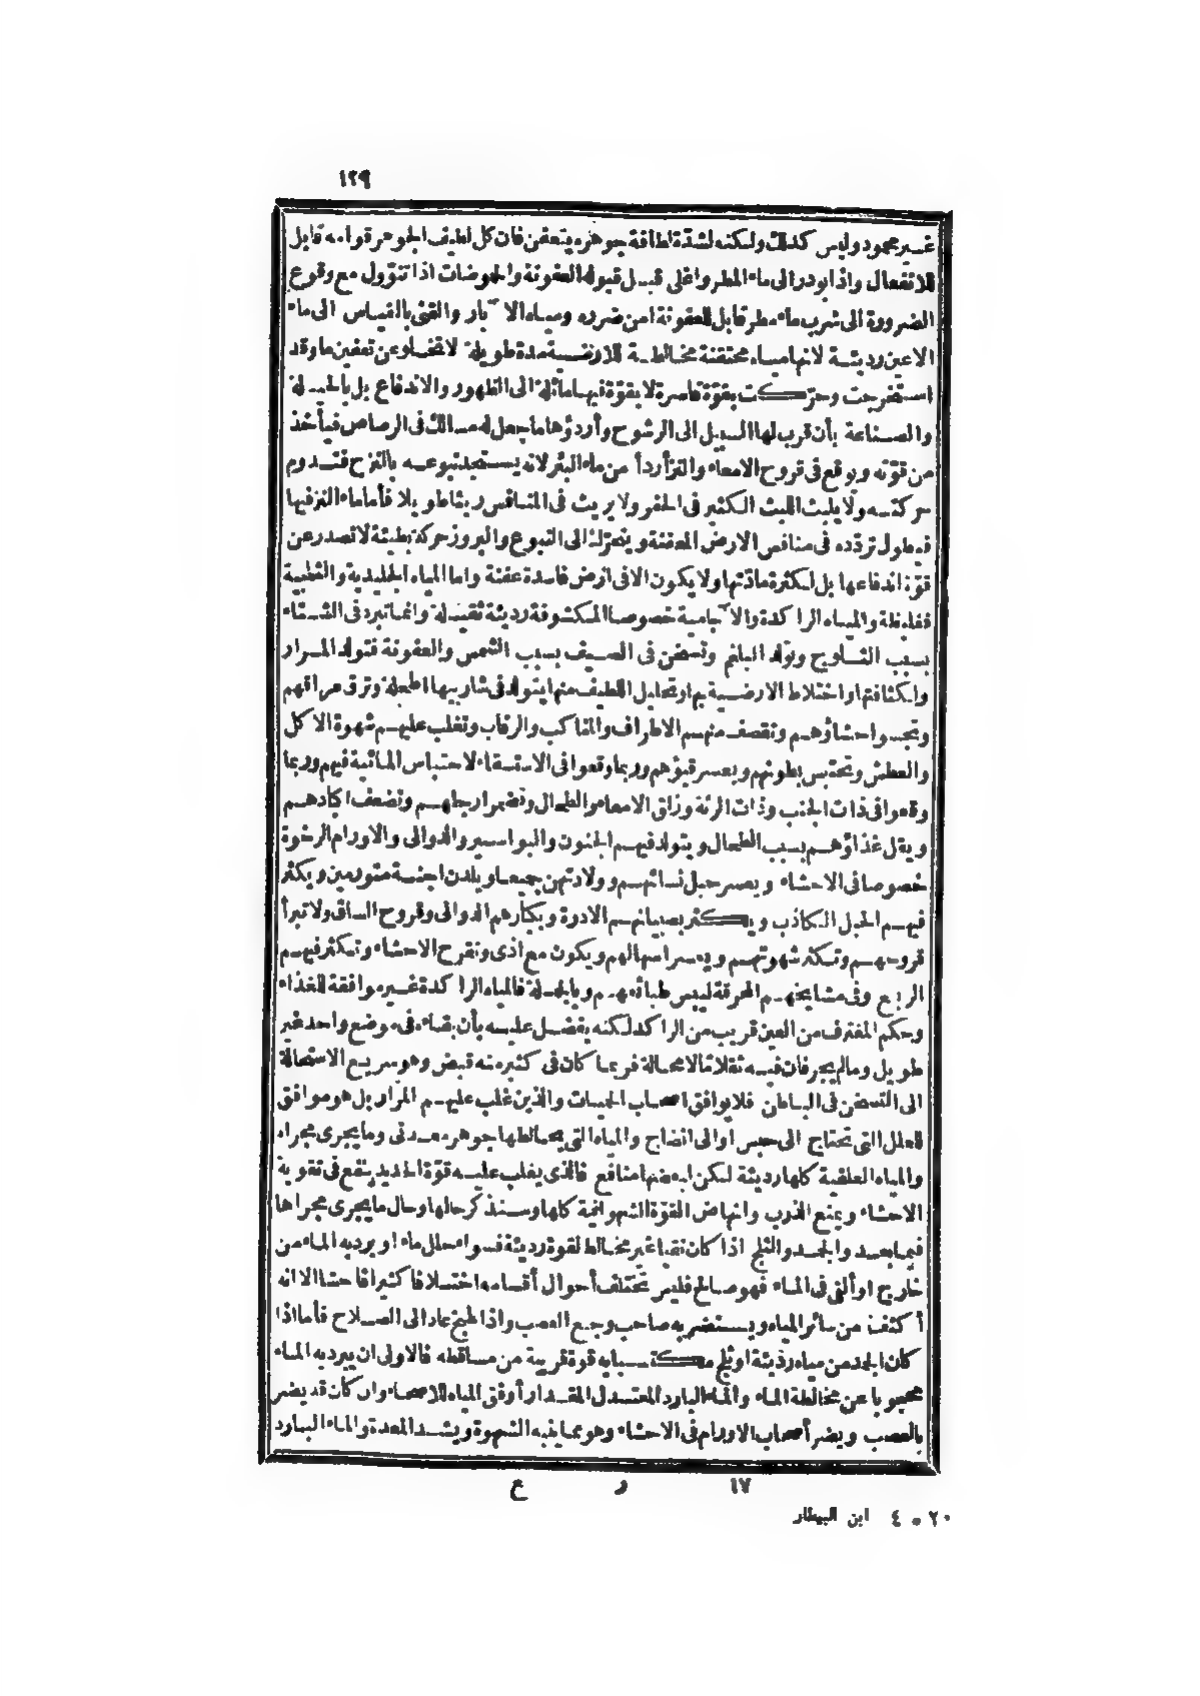 ١٢٩
غير محمود وليس كذلك ولكنه لشدة لطافة جوهره يتعفن فان كل لطيف الجوهر قوامه قابل
للانفعال واذا بودر الى ماء المطر واغلى قبل قبوله العفونة والحموضات اذا تنوول مع وقوع
الضرورة الى شرب ماء مطر قابل للعفونة امن ضرره ومياه الآبار والقنى بالقياس الى ماء
الاعين رديئة لانها مياه محتقنة مخالطة للارضية مدة طويلة لا تخلو عن تعفين ما وقد
استخرجت وحركت بقوة قاسرة لا بقوة فيها مائلة الى الظهور والاندفاع بل بالحيلة
والصناعة بأن قرب لها السبيل الى الرشوح وأردؤها ما جعل له مسالك فى الرصاص فيأخذ
من قوته ويوقع فى قروح الامعاء والنز أردأ من ماء البئر لانه يستجد نبوعه بالنزح فتدوم
حركته ولا يلبث اللبث الكثير فى الحفر ولا يريث فى المنافس ريثا طويلا فأما ماء النز فيها
فيطول تردده فى منافس الارض المعفنة ويتحرك الى النبوع والبروز حركة بطيئة لا تصدر عن
قوة اندفاعها بل لكثرة مادتها ولا يكون الا فى ارض فاسدة عفنة واما المياه الجليدية والثلجية
فغليظة والمياه الراكدة والآجامية خصوصا المكشوفة رديئة ثقيلة وانما تبرد فى الشتاء
بسبب الثلوج وتولد البلغم وتسخن فى الصيف بسبب الشمس والعفونة فتولد المرار
ولكثافتها واختلاط الارضية بها وتحليل اللطيف منها يتولد فى شاربيها اطحلة وترق مراقهم
وتجسوا احشاؤهم وتقصف منهم الاطراف والمناكب والرقاب وتغلب عليهم شهوة الاكل
والعطش وتحتبس بطونهم ويعسر قيؤهم وربما وقعوا فى الاستسقاء لاحتباس المائية فيهم وربما
وقعوا فى ذات الجنب وذات الرئة وزلق الامعاء والطحال وتضمر ارجلهم وتضعف اكبادهم
ويقل غذاؤهم بسبب الطحال ويتولد فيهم الجنون والبواسير والدوالى والاورام الرخوة
خصوصا فى الاحشاء ويعسر حبل نسائهم وولادتهن جميعا ويلدن اجنة متورمين ويكثر
فيهم الحبل الكاذب ويكثر بصبيانهم الادرة وبكبارهم الدوالى وقروح الساق ولا تبرأ
قروحهم وتكثر شهوتهم ويعسر اسهالهم ويكون مع اذى وتقرح الاحشاء وتكثر فيهم
الربع وفى مشايخهم المحرقة ليبس طبائعهم وبالجملة فالمياه الراكدة غير موافقة للغذاء
وحكم المغترف من العين قريب من الراكد لكنه يفضل عليه بأن بقاءه فى موضع واحد غير
طويل وما لم يجر فان فيه ثقلا ما لا محالة فربما كان فى كثير منه قبض وهو سريع الاستحالة
الى التسخن فى الباطن فلا يوافق اصحاب الحميات والذين غلب عليهم المرار بل هو موافق
للعلل التى تحتاج الى حبس او الى انضاج والمياه التى يخالطها جوهر معدنى وما يجرى مجراه
والمياه العلقية كلها رديئة لكن لبعضها منافع فالذى يغلب عليه قوة الحديد ينفع فى تقوية
الاحشاء ويمنع الذرب وانهاض القوة الشهوانية كلها وسنذكر حالها وحال ما يجرى مجراها
فيما بعد والجمد والثلج اذا كان نقيا غير مخالط لقوة رديئة فسواء حلل ماء او برد به الماء من
خارج او ألقى فى الماء فهو صالح فليس تختلف أحوال أقسامه اختلافا كثيرا فاحشا الا انه
أكثف من سائر المياه ويستضر به صاحب وجع العصب واذا طبخ عاد الى الصلاح فأما اذا
كان الجمد من مياه رديئة او ثلج مكتسبا به قوة قريبة من مساقطه فالاولى ان يبرد به الماء
محجوبا عن مخالطة الماء والماء البارد المعتدل المقدار أوفق المياه للاصحاء وان كان قد يضر
بالعصب ويضر أصحاب الاورام فى الاحشاء وهو مما ينبه الشهوة ويشد المعدة والماء البارد
١٧ ر ع
٢٠ * ٤ ابن البيطار